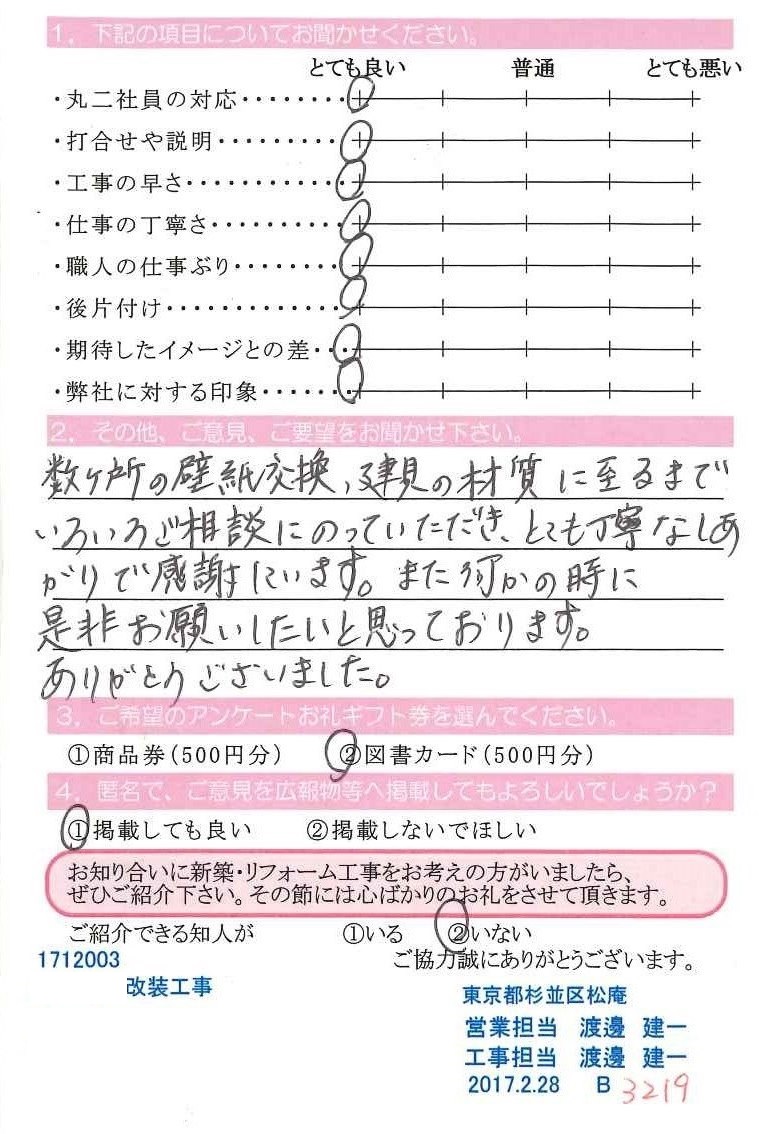 1. 下記の項目についてお聞かせください。
とても良い 普通 とても悪い
・丸二社員の対応・・・・・・・・
・打合せや説明・・・・・・・・・
・工事の早さ・・・・・・・・・・・
・仕事の丁寧さ・・・・・・・・・
・職人の仕事ぶり・・・・・・・・
・後片付け・・・・・・・・・・・・
・期待したイメージとの差・・・
・弊社に対する印象・・・・・・・
2. その他、ご意見、ご要望をお聞かせ下さい。
数ヶ所の壁紙交換、建具の材質に至るまで
いろいろご相談にのっていただき、とても丁寧なしあ
がりで感謝しています。また何かの時に
是非お願いしたいと思っております。
ありがとうございました。
3. ご希望のアンケートお礼ギフト券を選んでください。
①商品券(500円分) ②図書カード(500円分)
4. 匿名で、ご意見を広報物等へ掲載してもよろしいでしょうか?
①掲載しても良い ②掲載しないでほしい
お知り合いに新築・リフォーム工事をお考えの方がいましたら、
ぜひご紹介下さい。その節には心ばかりのお礼をさせて頂きます。
ご紹介できる知人が ①いる ②いない
1712003 ご協力誠にありがとうございます。
改装工事
東京都杉並区松庵
営業担当 渡邊 建一
工事担当 渡邊 建一
2017.2.28 B 3219